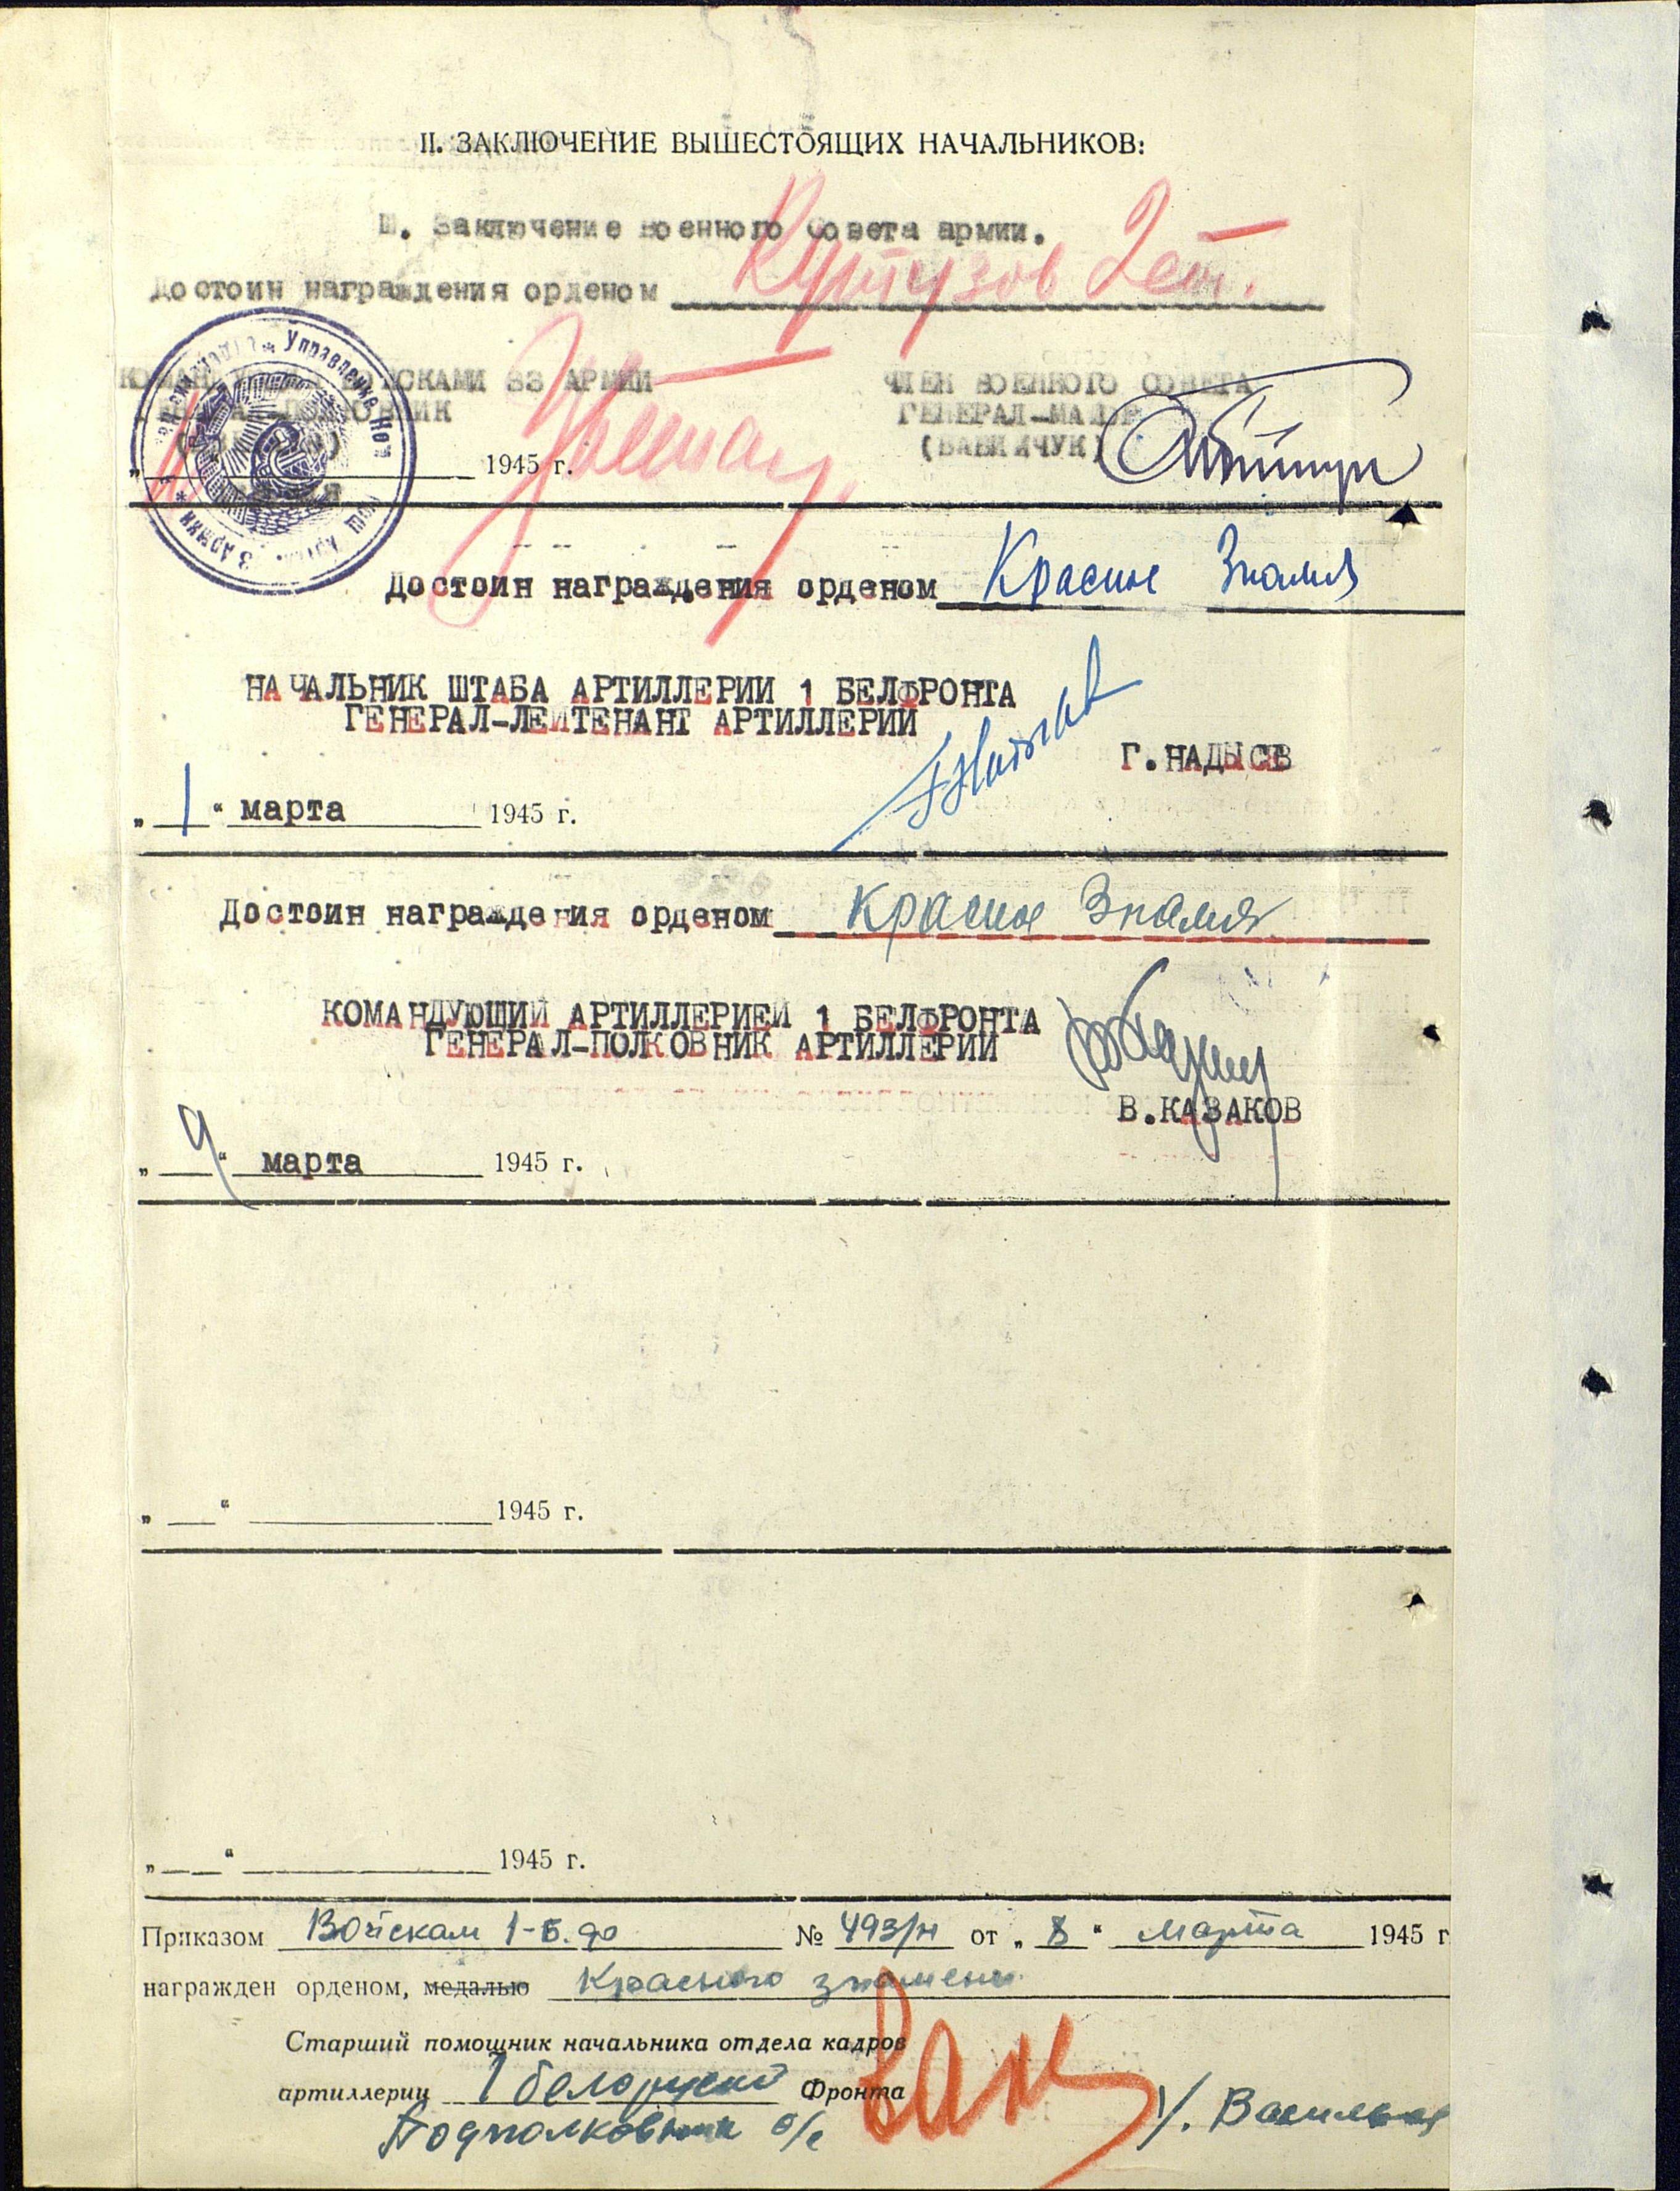 II. ЗАКЛЮЧЕНИЕ ВЫШЕСТОЯЩИХ НАЧАЛЬНИКОВ:
Ш. Заключение Военного Совета армии.
Достоин награждения орденом Кутузов 2 ст.
КОМАНДУЮЩИЙ ВОЙСКАМИ 33 АРМИИ ЧЛЕН ВОЕННОГО СОВЕТА
ГЕНЕРАЛ-ПОЛКОВНИК ГЕНЕРАЛ-МАЙОР
(БАБИЙЧУК)
1945 г.
Управление
Армии
Достоин награждения орденом Красное Знамя
НАЧАЛЬНИК ШТАБА АРТИЛЛЕРИИ 1 БЕЛФРОНТА
ГЕНЕРАЛ-ЛЕЙТЕНАНТ АРТИЛЛЕРИИ
Г.НАДЫСЕВ
„1“ марта 1945 г.
Достоин награждения орденом Красное Знамя
КОМАНДУЮЩИЙ АРТИЛЛЕРИЕЙ 1 БЕЛФРОНТА
ГЕНЕРАЛ-ПОЛКОВНИК АРТИЛЛЕРИИ
В.КАЗАКОВ
„9“ марта 1945 г.
„ “ 1945 г.
„ “ 1945 г.
Приказом Войскам 1-Б.ф № 493/н от „8“ марта 1945 г
награжден орденом, медалью Красного знамени
Старший помощник начальника отдела кадров
артиллерии 1 белоруский Фронта
Подполковник а/с